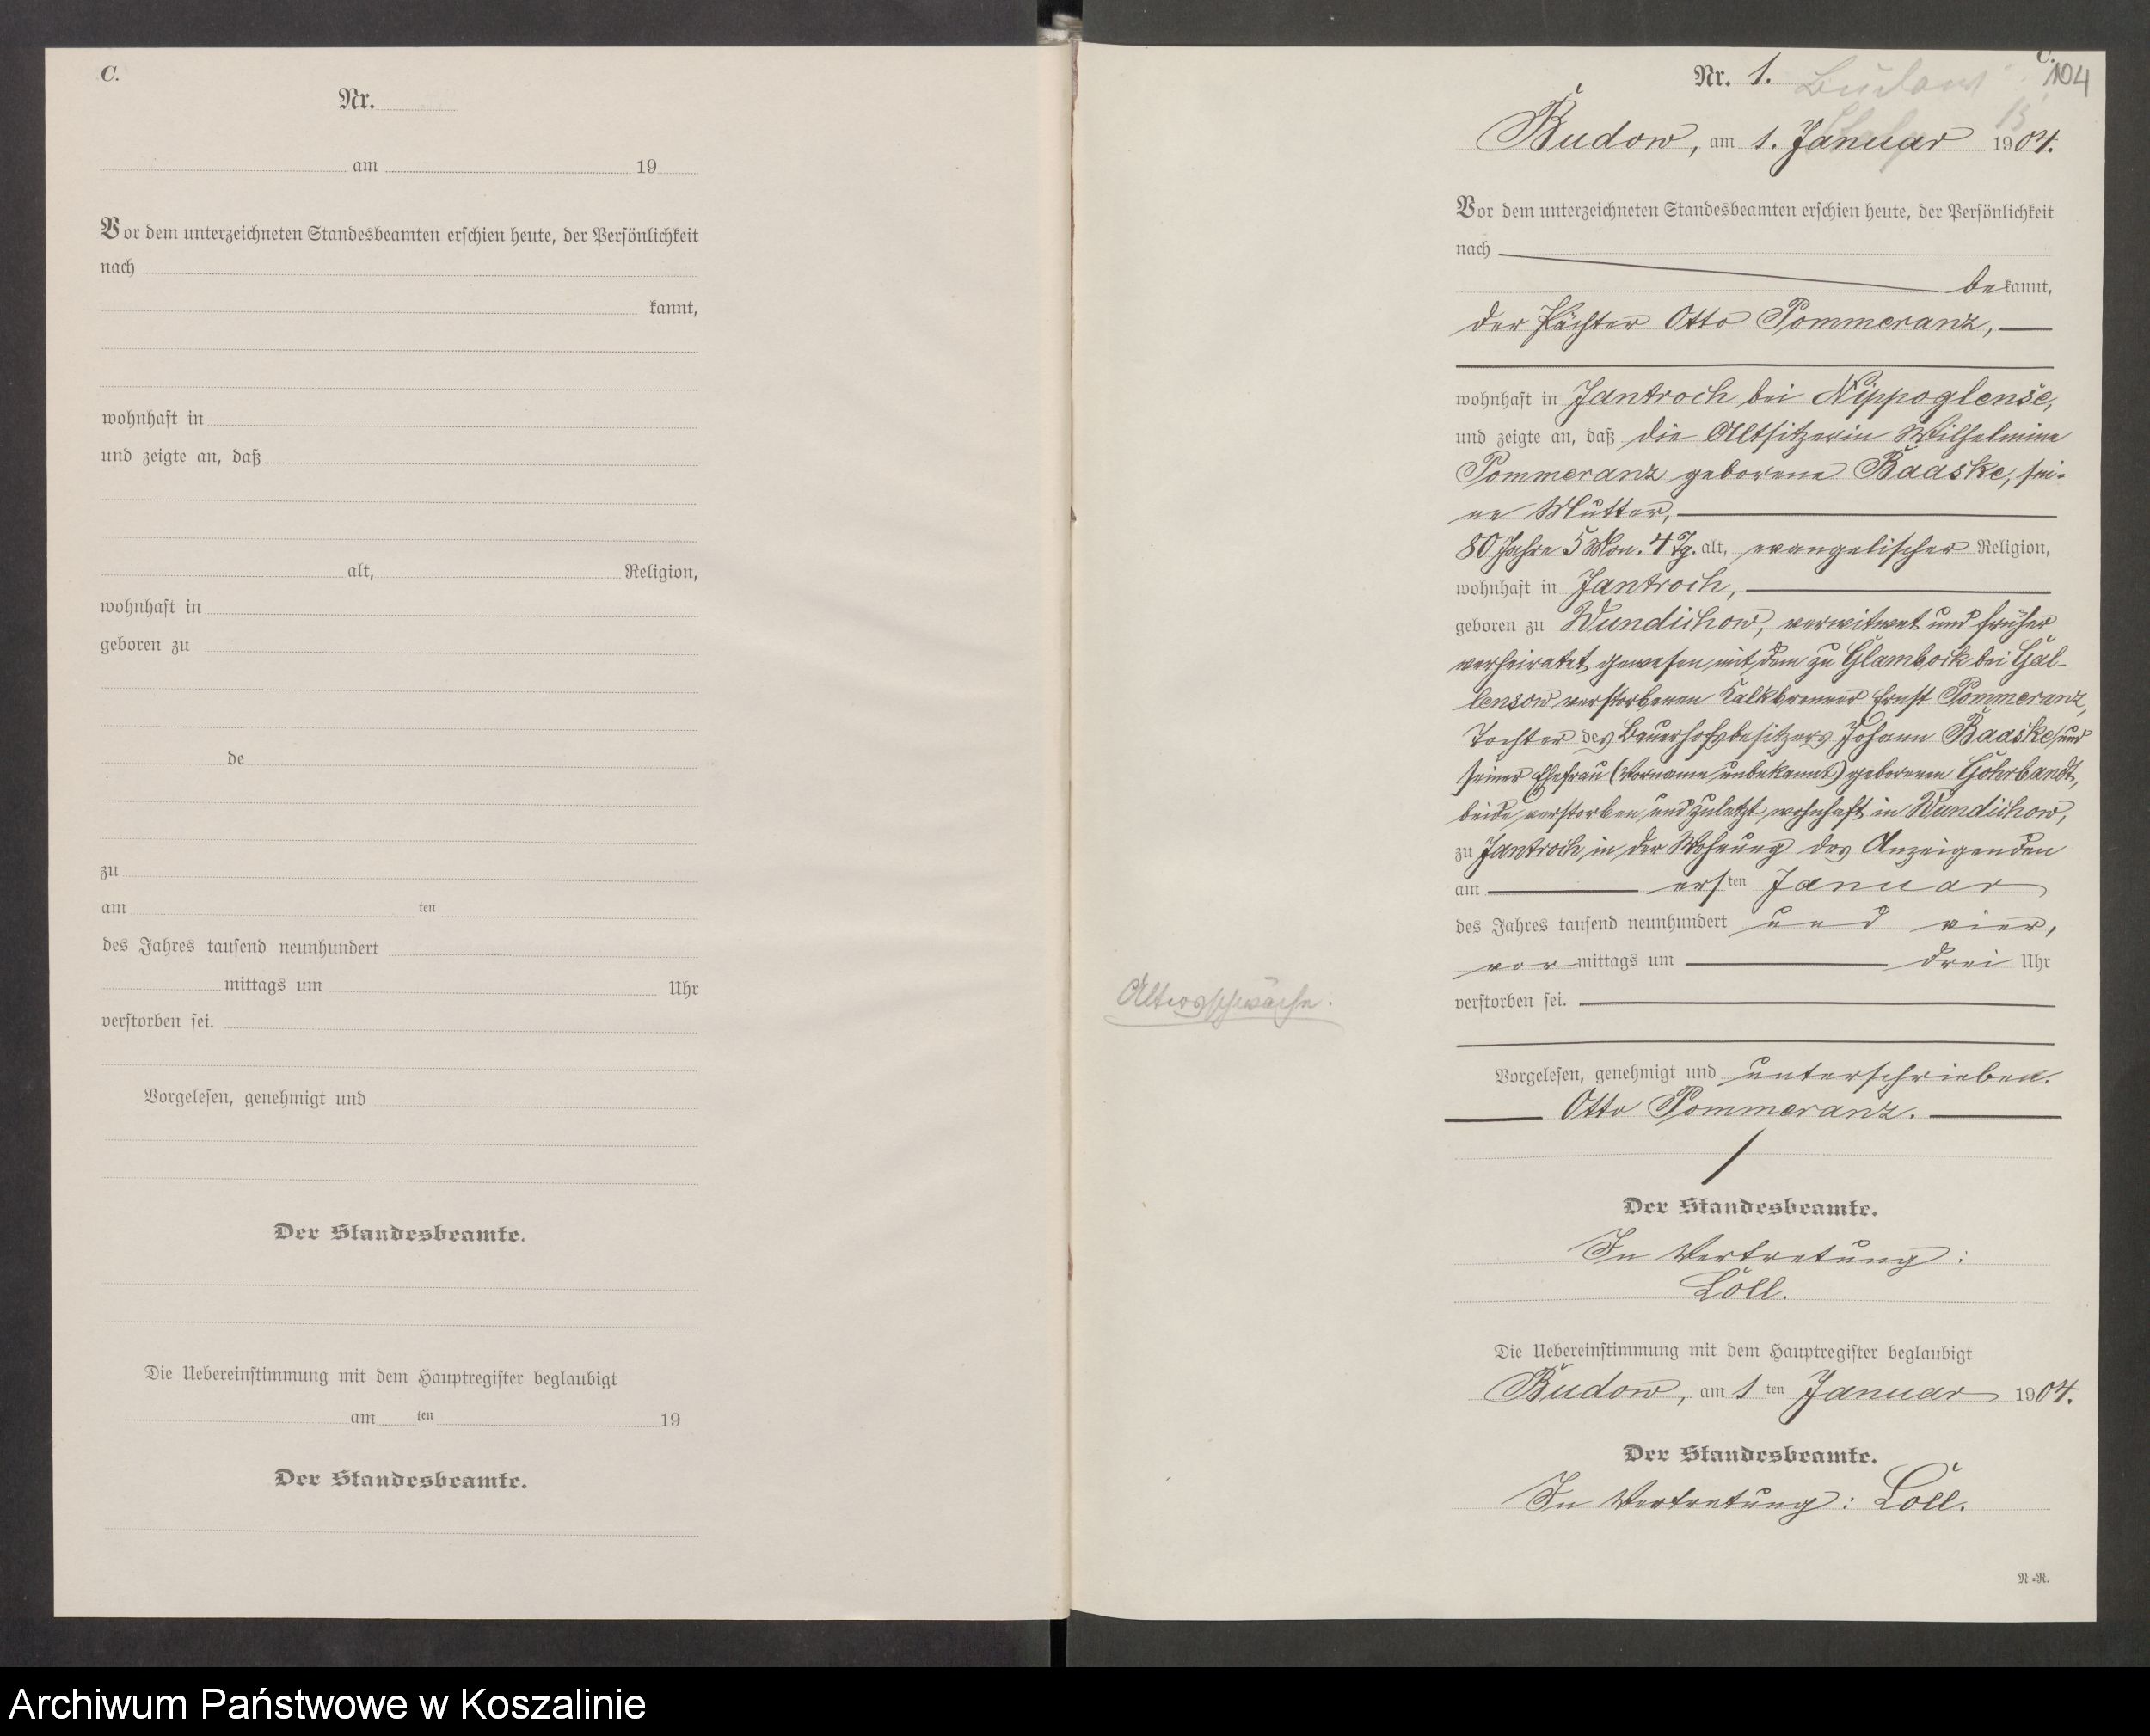 C.
Nr.
am 19
Vor dem unterzeichneten Standesbeamten erschien heute, der Persönlichkeit
nach
kannt,
wohnhaft in
und zeigte an, daß
alt, Religion,
wohnhaft in
geboren zu
de
zu
am ten
des Jahres tausend neunhundert
mittags um Uhr
verstorben sei.
Vorgelesen, genehmigt und
Der Standesbeamte.
Die Uebereinstimmung mit dem Hauptregister beglaubigt
am ten 19
Der Standesbeamte.
Altersschwäche.
C.
104
Nr. 1. Budow
Budow, am 1. Januar 1904.
Vor dem unterzeichneten Standesbeamten erschien heute, der Persönlichkeit
nach
bekannt,
der Pächter Otto Pommeranz,
wohnhaft in Jantroch bei Nippoglense,
und zeigte an, daß die Altsitzerin Wilhelmine
Pommeranz geborene Baaske, sei-
ne Mutter,
80 Jahre 5 Mon. 4 Tg. alt, evangelischer Religion,
wohnhaft in Jantroch,
geboren zu Wundichow, verwitwet und früher
verheiratet gewesen mit dem zu Glambock bei Gal-
lensow verstorbenen Kalkbrenner Ernst Pommeranz,
Tochter des Bauerhofsbesitzers Johann Baaske und
seiner Ehefrau (Vorname unbekannt) geborenen Gohrbandt,
beide verstorben und zuletzt wohnhaft in Wundichow,
zu Jantroch, in der Wohnung des Anzeigenden
am ersten Januar
des Jahres tausend neunhundert und vier,
vormittags um drei Uhr
verstorben sei.
Vorgelesen, genehmigt und unterschrieben.
Otto Pommeranz.
Der Standesbeamte.
In Vertretung:
Loll.
Die Uebereinstimmung mit dem Hauptregister beglaubigt
Budow, am 1 ten Januar 1904.
Der Standesbeamte.
In Vertretung: Loll.
N=R.
Archiwum Państwowe w Koszalinie